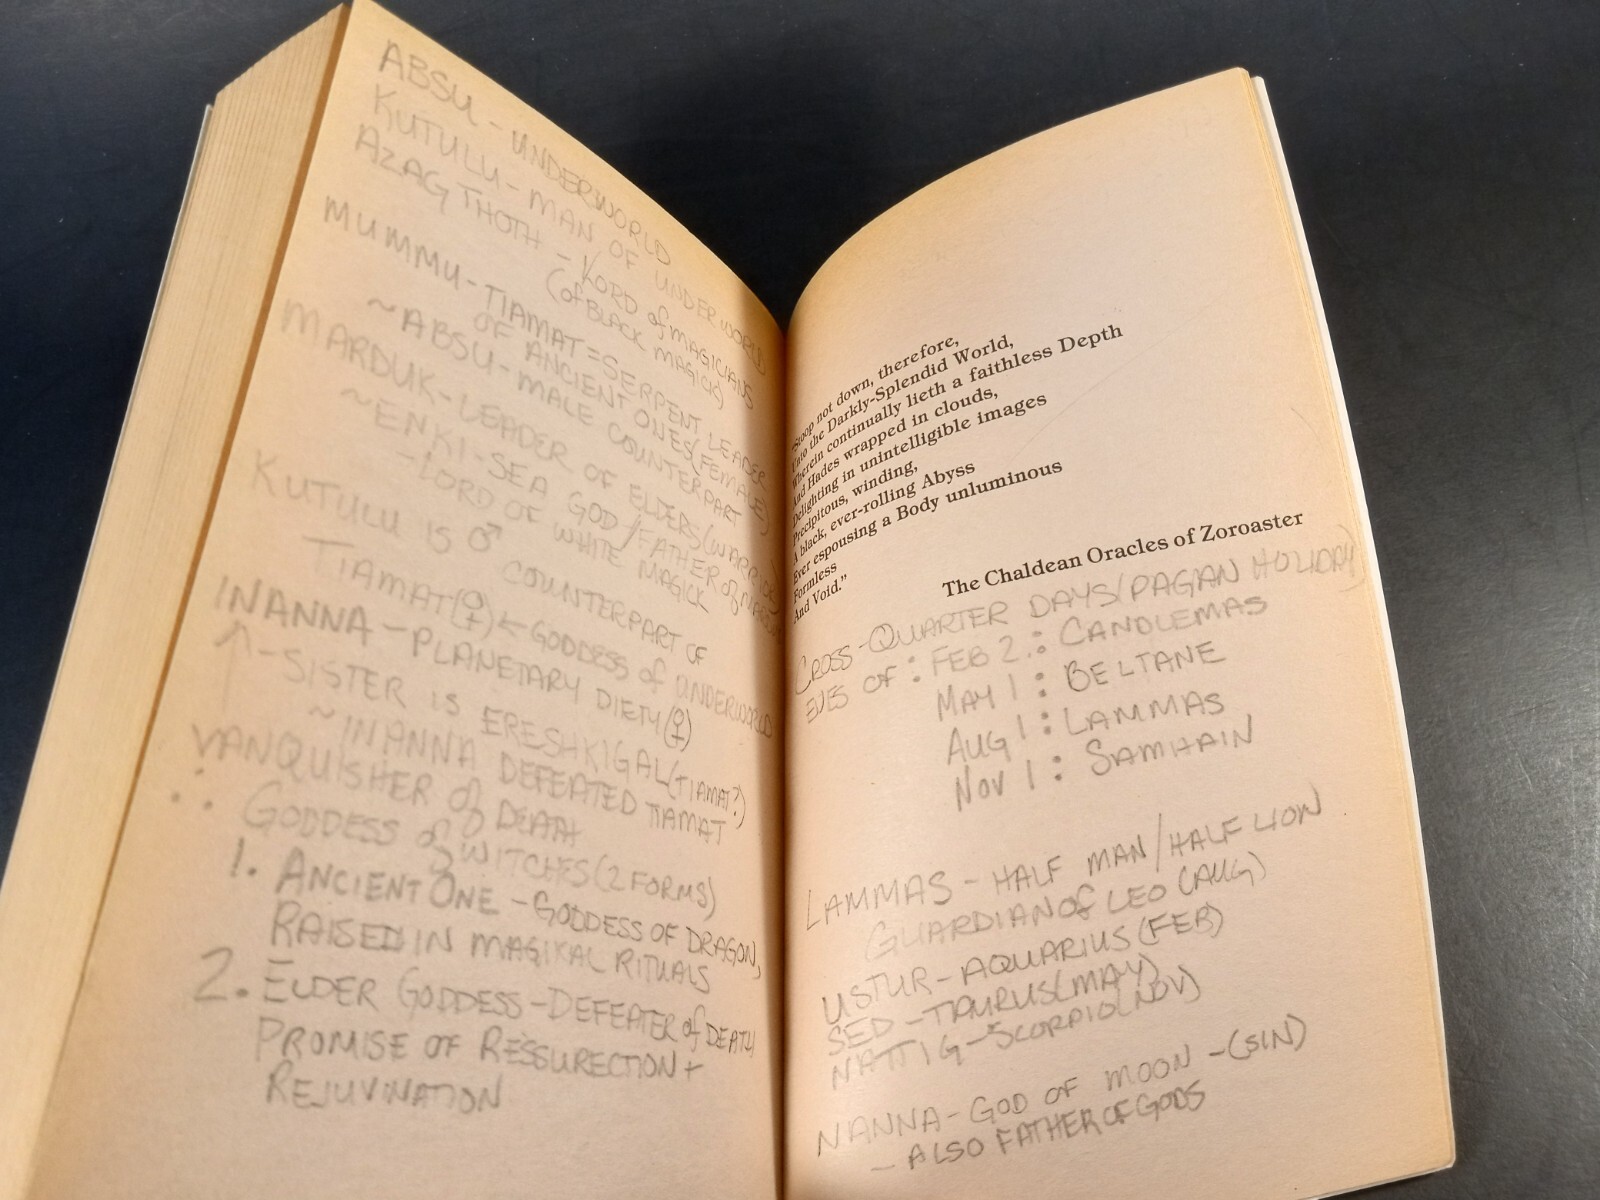 ABSU - UNDERWORLD
KUTULU - MAN OF UNDERWORLD
AZAG THOTH - LORD of MAGICIANS
(of BLACK MAGICK)
MUMMU-TIAMAT = SERPENT LEADER
OF ANCIENT ONES (FEMALE)
~ABSU - MALE COUNTERPART
MARDUK - LEADER OF ELDERS (WARRIOR)
~ENKI - SEA GOD/FATHER of MARDUK
-LORD OF WHITE MAGICK
KUTULU IS ♂ COUNTERPART OF
TIAMAT(♀) ← GODDESS of UNDERWORLD
INANNA - PLANETARY DIETY (♀)
-SISTER IS ERESHKIGAL (TIAMAT?)
~INANNA DEFEATED TIAMAT
VANQUISHER of DEATH
∴ GODDESS of WITCHES (2 FORMS)
1. ANCIENT ONE - GODDESS OF DRAGON,
RAISED IN MAGIKAL RITUALS
2. ELDER GODDESS - DEFEATER of DEATH
PROMISE OF RESSURECTION +
REJUVINATION
"Stoop not down, therefore,
Unto the Darkly-Splendid World,
Wherein continually lieth a faithless Depth
And Hades wrapped in clouds,
Delighting in unintelligible images
Precipitous, winding,
A black, ever-rolling Abyss
Ever espousing a Body unluminous
Formless
And Void."
The Chaldean Oracles of Zoroaster
CROSS-QUARTER DAYS (PAGAN HOLIDAY)
EVES OF : FEB 2 : CANDLEMAS
MAY 1 : BELTANE
AUG 1 : LAMMAS
NOV 1 : SAMHAIN
LAMMAS - HALF MAN/HALF LION
GUARDIAN of LEO (AUG)
USTUR - AQUARIUS (FEB)
SED - TAURUS (MAY)
NATTIG - SCORPIO (NOV)
NANNA - GOD OF MOON - (SIN)
- ALSO FATHER OF GODS